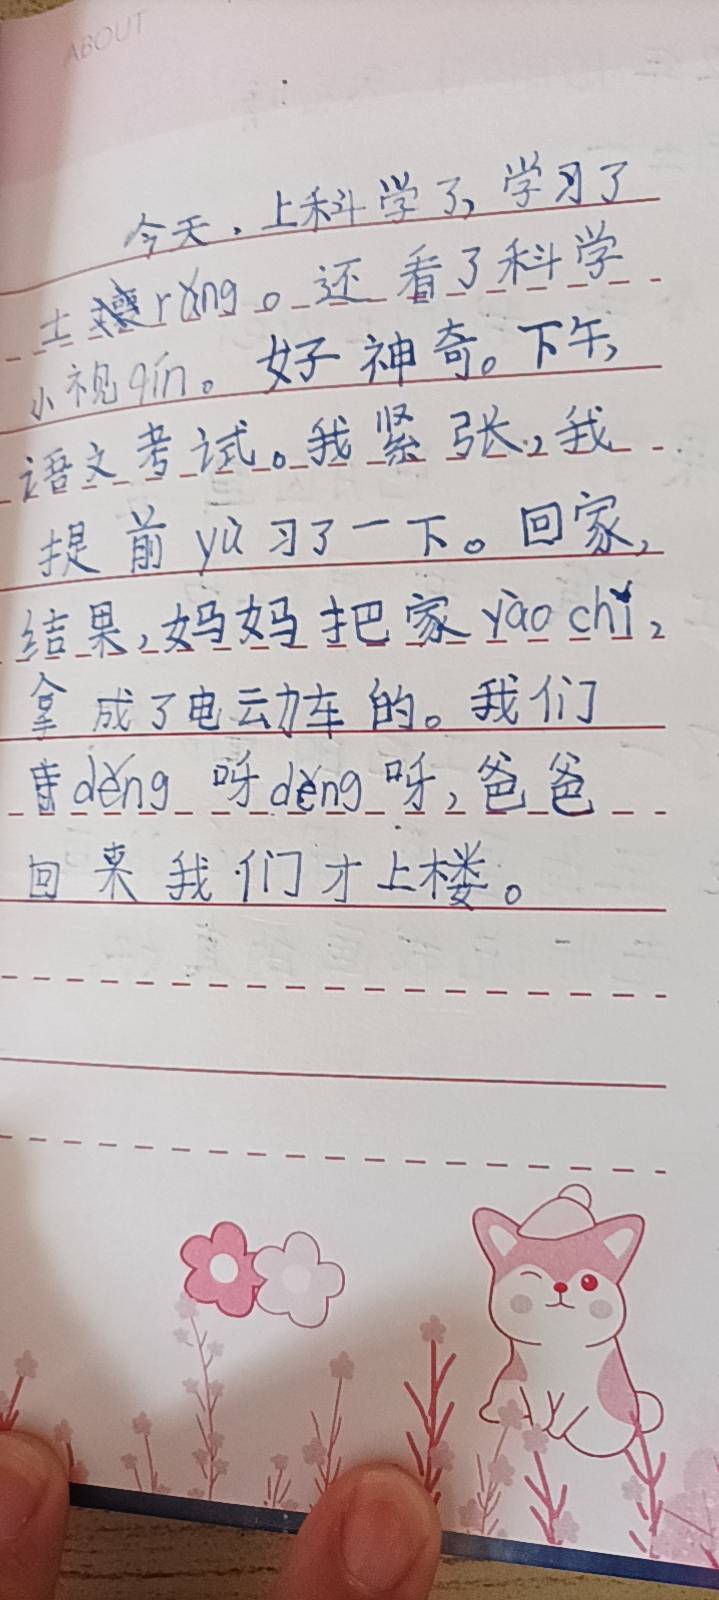 ABOUT
今天，上科学了，学习了
土rǎng。还看了科学
小视qín。好神奇。下午，
语文考试。我紧张，我
提前yù习了一下。回家，
结果，妈妈把家yào chí，
拿成了电动车的。我们
děng呀děng呀，爸爸
回来我们才上楼。